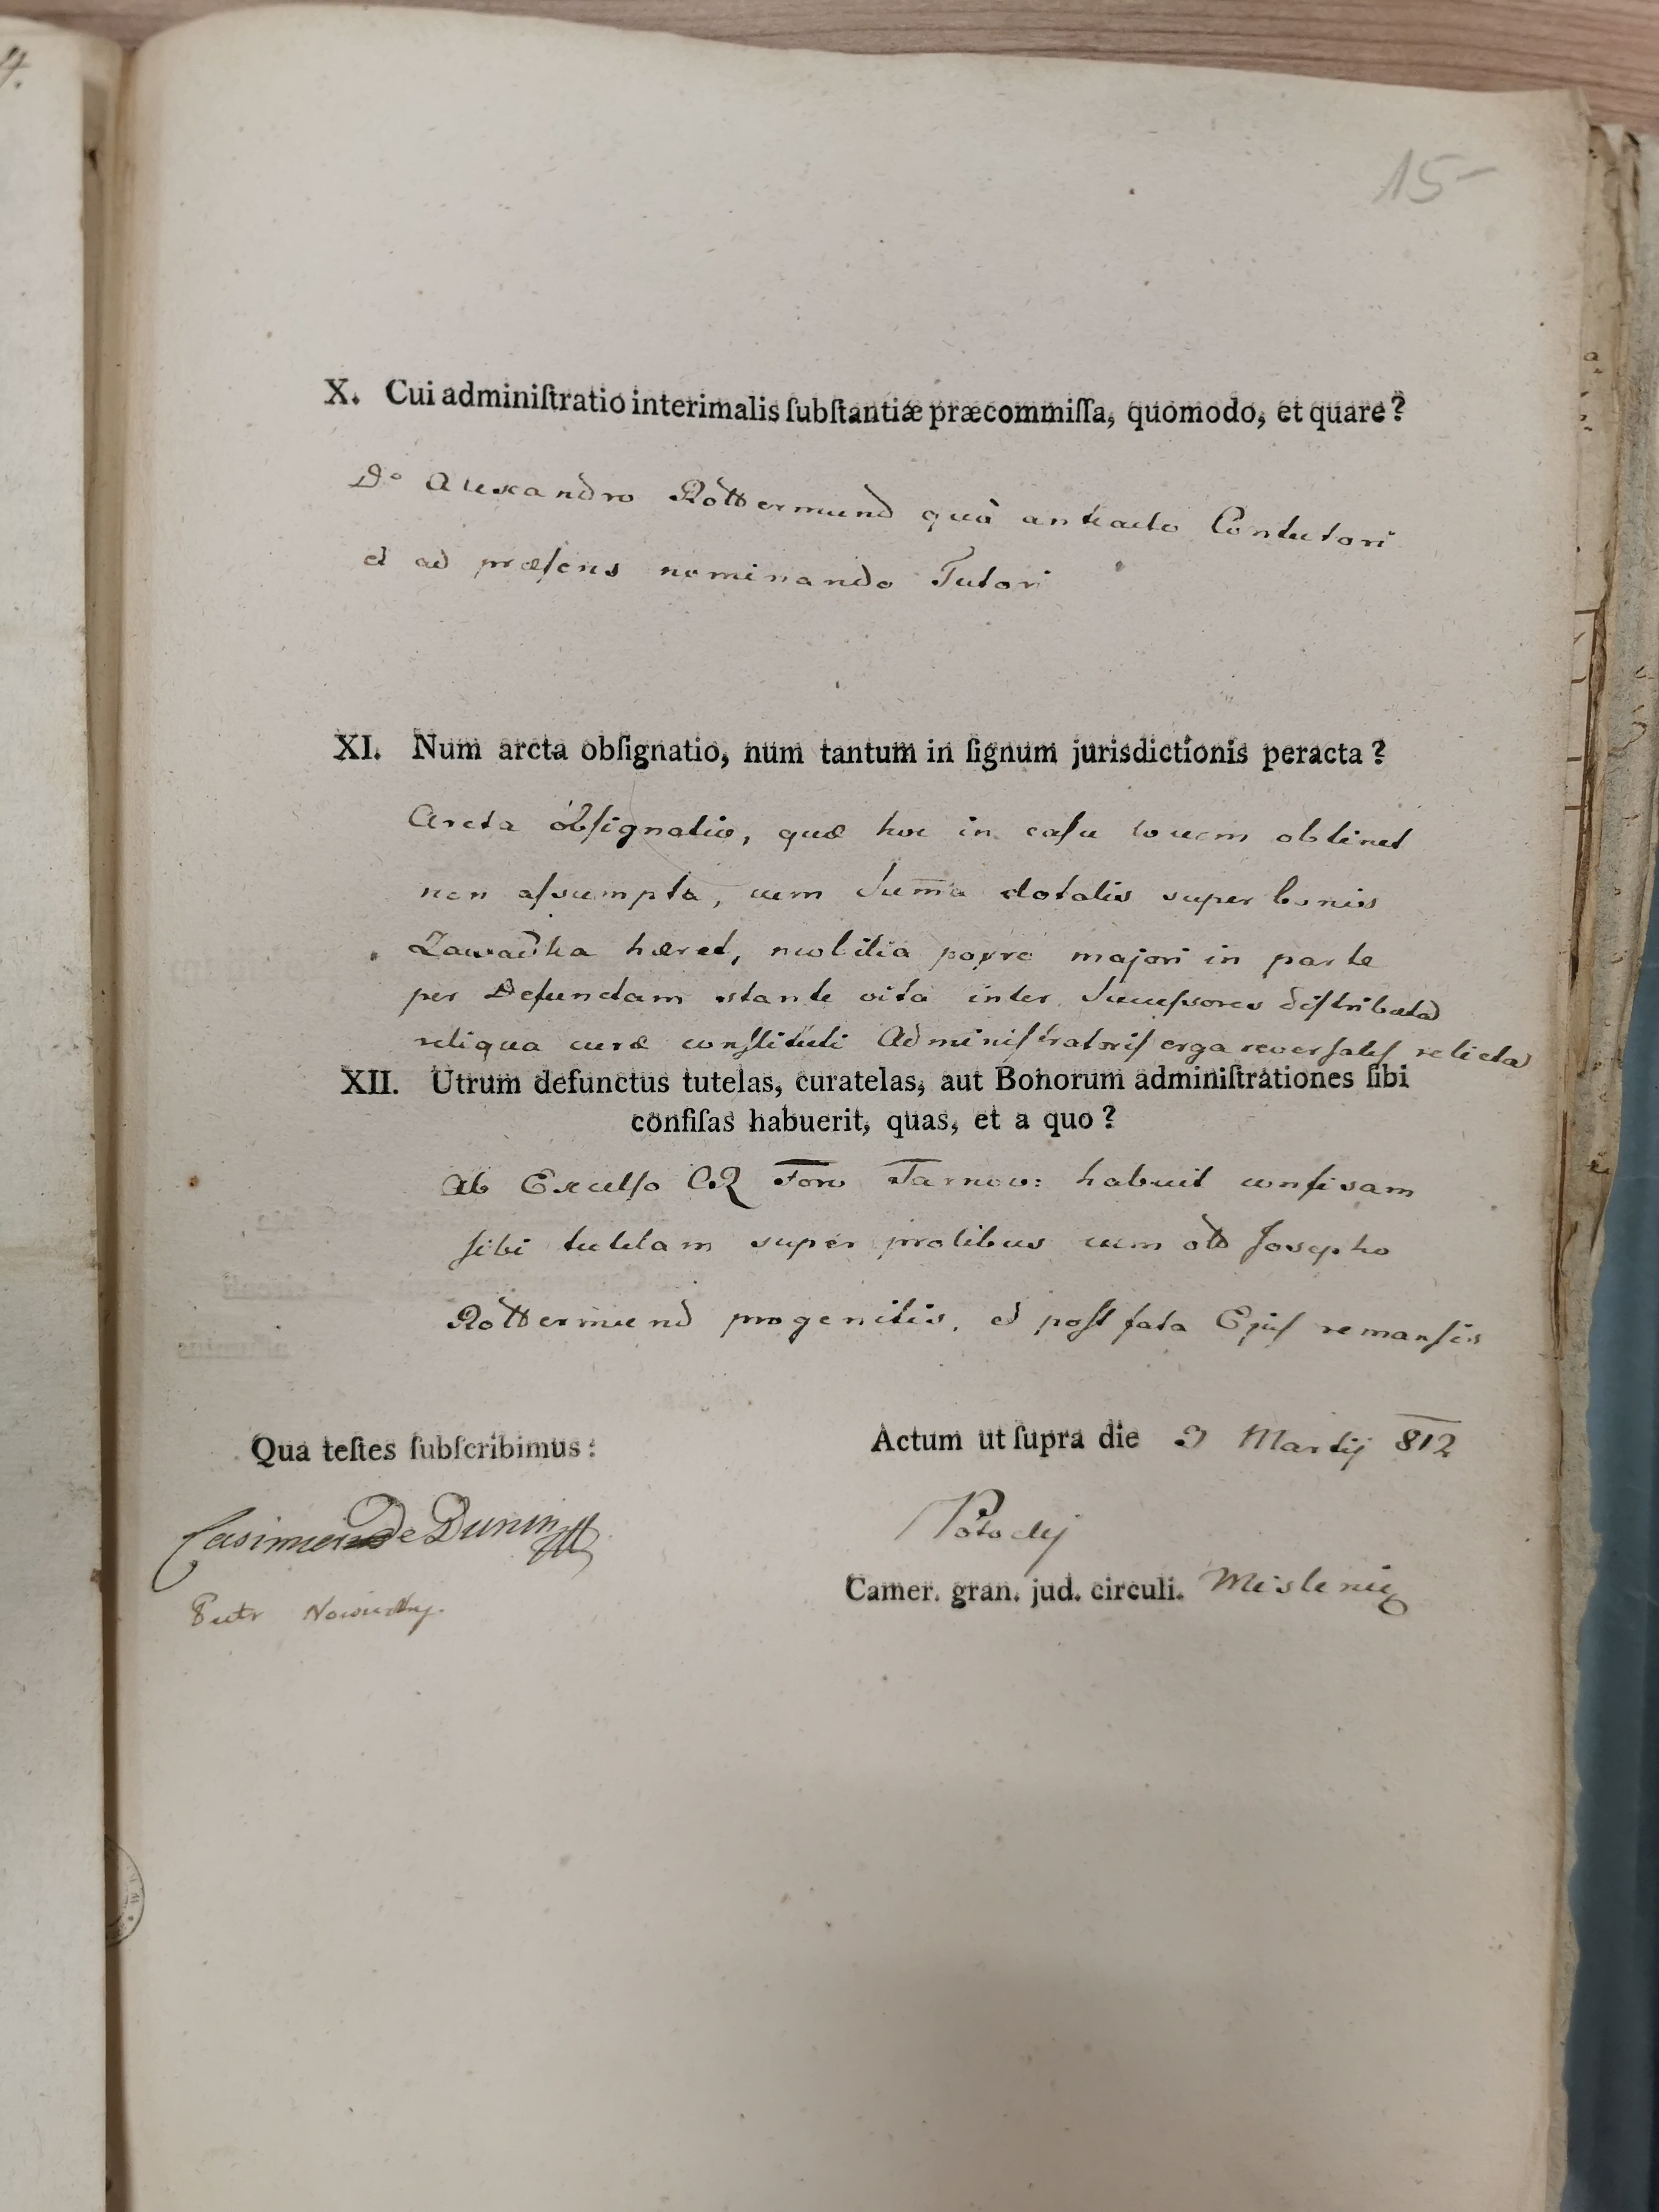 15-
X. Cui adminiſtratio interimalis ſubſtantiæ præcommiſſa, quomodo, et quare?
Do Alexandro Röttermund quà anteacto Contutori
et ad præſens nominando Tutori
XI. Num arcta obſignatio, num tantum in ſignum jurisdictionis peracta?
Arcta obſignatio, quæ hoc in caſu locum obtinet
non aſsumpta, cum Sum̄a dotalis super bonis
Zawadka hæret, mobilia porro majori in parte
per Defunctam stante vita inter Succeſsores diſtributa
reliqua curæ conſtituti Adminiſtratoriſ erga reverſaleſ relicta
XII. Utrum defunctus tutelas, curatelas, aut Bonorum adminiſtrationes ſibi
confiſas habuerit, quas, et a quo?
Ab Excelſo C.R. Foro Tarnov: habuit confisam
ſibi tutelam super prolibus cum olo Josepho
Röttermund progenitis, et poſt fata Ejuſ remanſis
Qua teſtes ſubſcribimus:
Actum ut ſupra die 3 Martij 812
Casimerus de Dunin
Potocky
Camer. gran. jud. circuli. Mislenic
Piotr